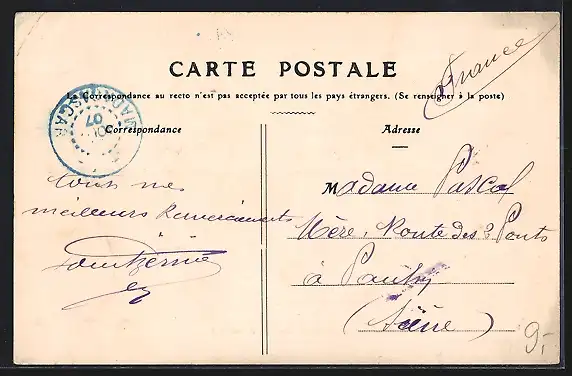 France
CARTE POSTALE
La Correspondance au recto n'est pas acceptée par tous les pays étrangers. (Se renseigner à la poste)
MADAGASCAR
07
Correspondance
Adresse
tous mes
meilleurs Remerciements
Madame Pascal
Mère, Route des 2 Ponts
à
(Seine)
9,-